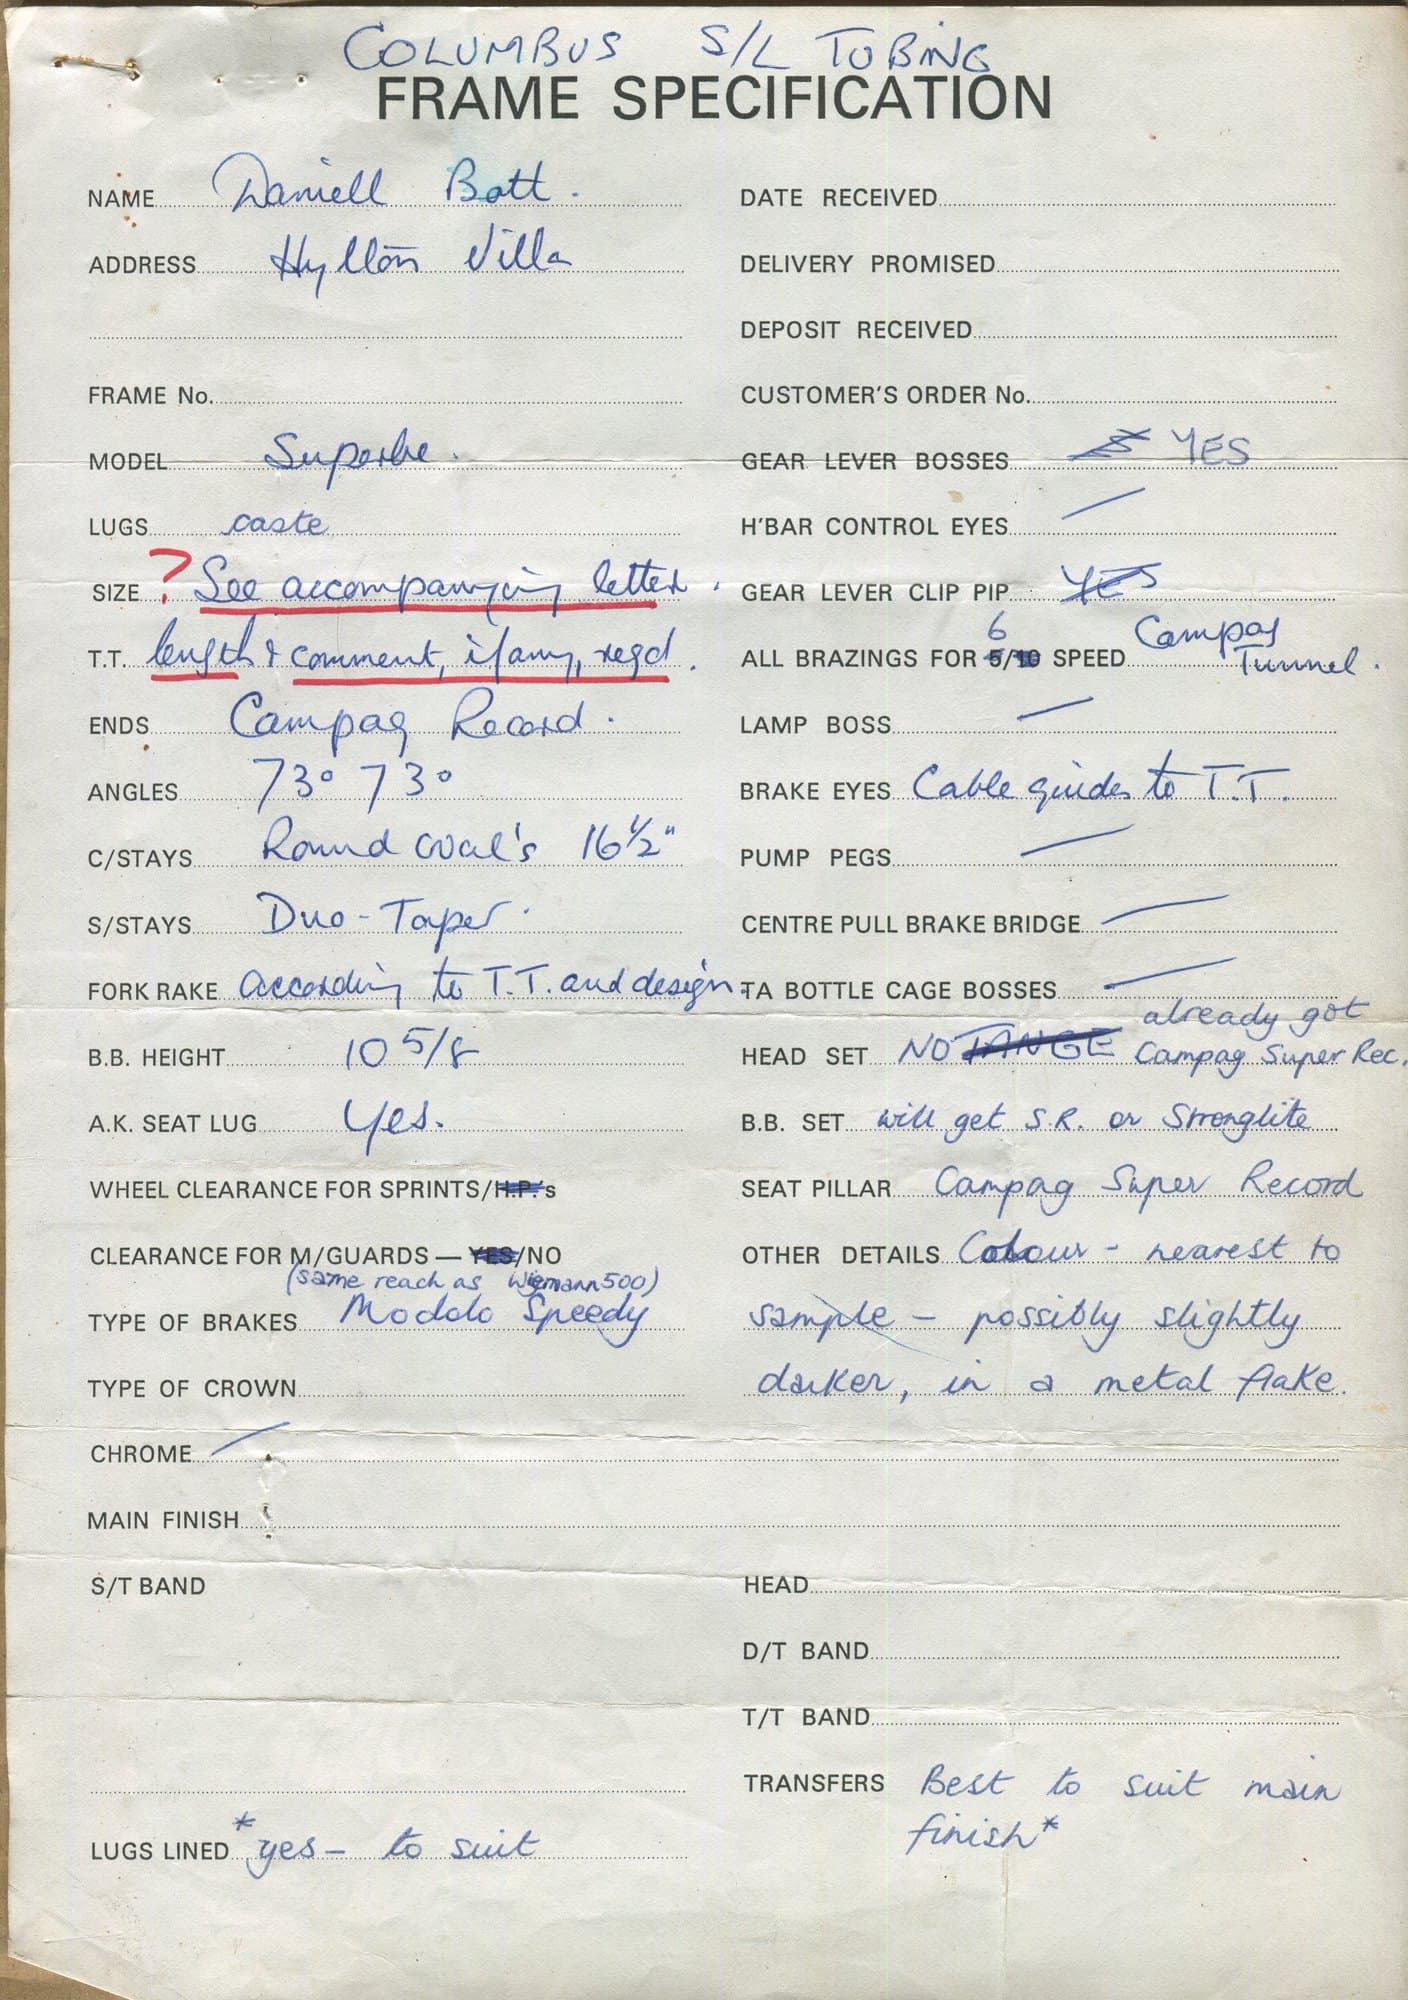 COLUMBUS S/L TUBING
FRAME SPECIFICATION
NAME Daniell Bott.
ADDRESS Hyllton Villa
FRAME No.
MODEL Superbe.
LUGS caste
SIZE ? See accompanying letter.
T.T. length & comment, if any, regd.
ENDS Campag Record.
ANGLES 73° 73°
C/STAYS Round oval's 16½"
S/STAYS Duo-Taper.
FORK RAKE according to T.T. and design.
B.B. HEIGHT 10 5/8
A.K. SEAT LUG Yes.
WHEEL CLEARANCE FOR SPRINTS/H.P.'s
CLEARANCE FOR M/GUARDS — YES/NO
(same reach as Wiemann 500)
TYPE OF BRAKES Modolo Speedy
TYPE OF CROWN
CHROME /
MAIN FINISH
S/T BAND
LUGS LINED *yes - to suit
DATE RECEIVED
DELIVERY PROMISED
DEPOSIT RECEIVED
CUSTOMER'S ORDER No.
GEAR LEVER BOSSES YES
H'BAR CONTROL EYES /
GEAR LEVER CLIP PIP YES
6 Campag
ALL BRAZINGS FOR 5/10 SPEED Tunnel.
LAMP BOSS /
BRAKE EYES Cable guides to T.T.
PUMP PEGS /
CENTRE PULL BRAKE BRIDGE /
TA BOTTLE CAGE BOSSES /
already got
HEAD SET NO TANGE Campag Super Rec.
B.B. SET will get S.R. or Stronglite
SEAT PILLAR Campag Super Record
OTHER DETAILS Colour - nearest to
sample - possibly slightly
darker, in a metal flake.
HEAD
D/T BAND
T/T BAND
TRANSFERS Best to suit main
finish*